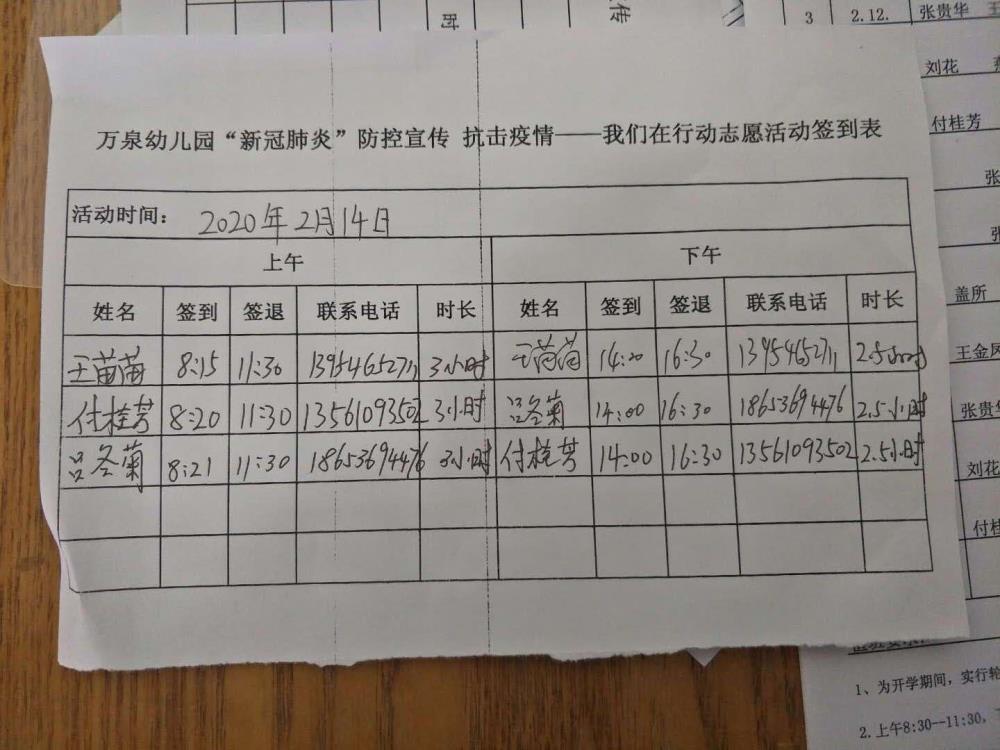 时
传
3 2.12. 张贵华 王
刘花
付桂芳
张
张
盖所
王金凤
张贵华
刘花
付桂
万泉幼儿园“新冠肺炎”防控宣传 抗击疫情——我们在行动志愿活动签到表
活动时间: 2020年2月14日
上午 下午
姓名 签到 签退 联系电话 时长 姓名 签到 签退 联系电话 时长
王苗苗 8:15 11:30 13954652711 3小时 王苗苗 14:00 16:30 13954652711 2.5小时
付桂芳 8:20 11:30 13561093502 3小时 吕冬菊 14:00 16:30 18653694476 2.5小时
吕冬菊 8:21 11:30 18653694476 3小时 付桂芳 14:00 16:30 13561093502 2.5小时
1、为开学期间,实行轮
2.上午8:30--11:30,